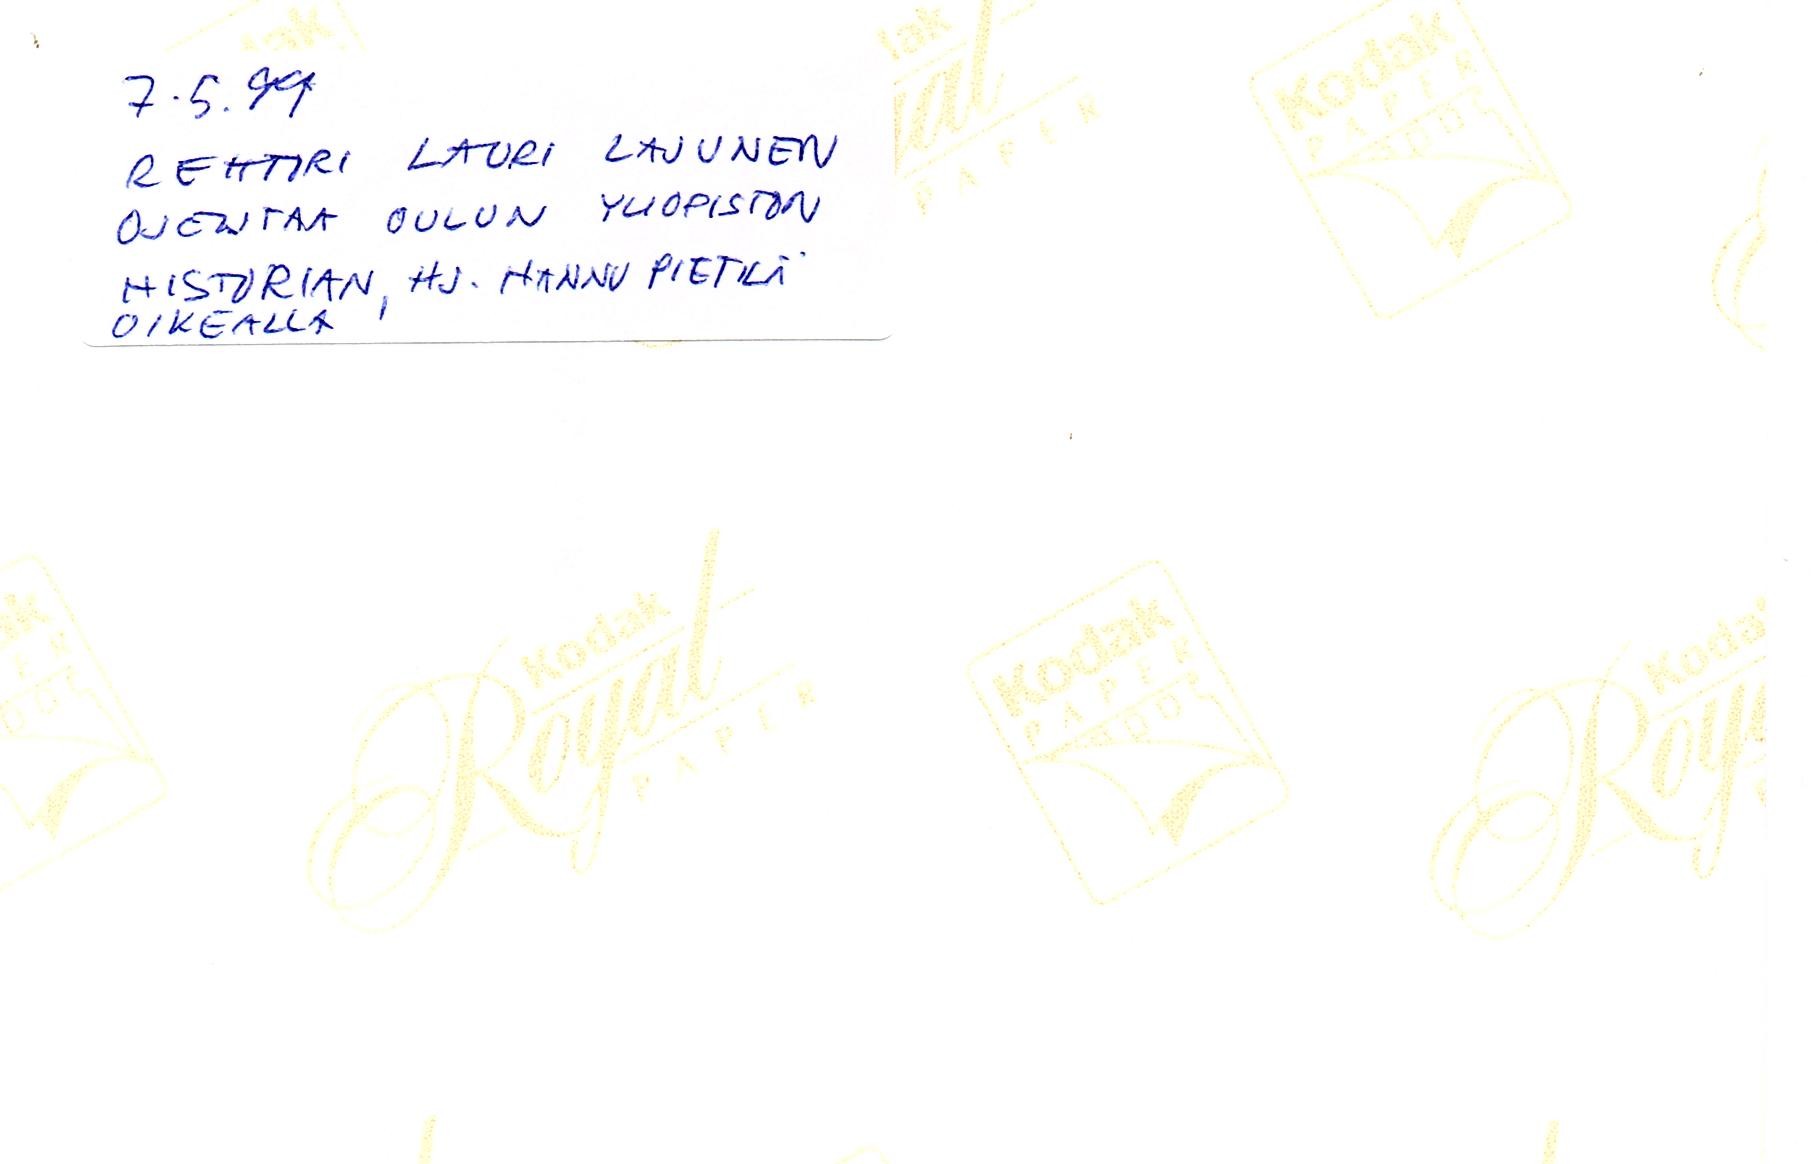 7.5.99
REHTORI LAURI LAJUNEN
OJENTAA OULUN YLIOPISTON
HISTORIAN, HJ. HANNU PIETILÄ
OIKEALLA
Kodak
Royal
PAPER
Kodak
PAPER
Kodak
Royal
PAPER
Kodak
PAPER
Kodak
Royal